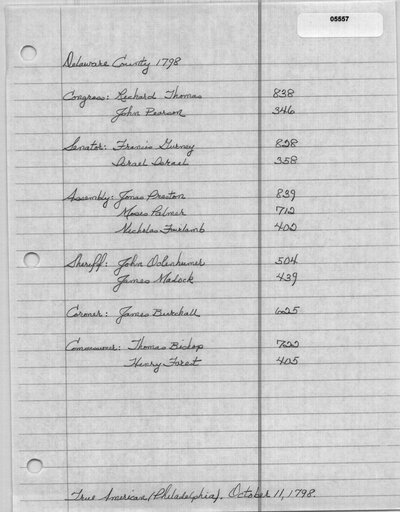 05557
Delaware County 1798
Congress: Richard Thomas 838
John Pearson 346
Senator: Francis Gurney 828
Israel Israel 358
Assembly: Jonas Preston 839
Moses Palmer 712
Nicholas Fairlamb 402
Sheriff: John Odenheimer 504
James Madock 439
Coroner: James Burchall 625
Commissioner: Thomas Bishop 722
Henry Forest 405
True American (Philadelphia). October 11, 1798.